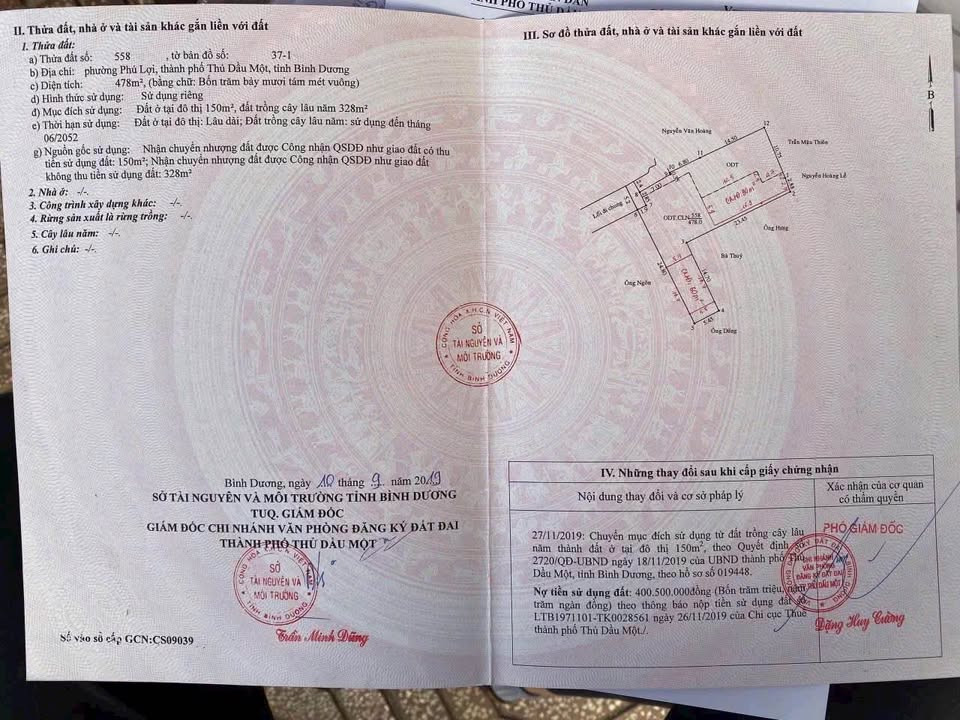 PHỐ THỦ DẦU
II. Thửa đất, nhà ở và tài sản khác gắn liền với đất
1. Thửa đất:
a) Thửa đất số: 558 , tờ bản đồ số: 37-1
b) Địa chỉ: phường Phú Lợi, thành phố Thủ Dầu Một, tỉnh Bình Dương
c) Diện tích: 478m², (bằng chữ: Bốn trăm bảy mươi tám mét vuông)
d) Hình thức sử dụng: Sử dụng riêng
đ) Mục đích sử dụng: Đất ở tại đô thị 150m², đất trồng cây lâu năm 328m²
e) Thời hạn sử dụng: Đất ở tại đô thị: Lâu dài; Đất trồng cây lâu năm: sử dụng đến tháng
06/2052
g) Nguồn gốc sử dụng: Nhận chuyển nhượng đất được Công nhận QSDĐ như giao đất có thu
tiền sử dụng đất: 150m²; Nhận chuyển nhượng đất được Công nhận QSDĐ như giao đất
không thu tiền sử dụng đất: 328m²
2. Nhà ở: -/-.
3. Công trình xây dựng khác: -/-.
4. Rừng sản xuất là rừng trồng: -/-.
5. Cây lâu năm: -/-.
6. Ghi chú: -/-.
SỞ
TÀI NGUYÊN VÀ
MÔI TRƯỜNG
CỘNG HÒA X.H.C.N VIỆT NAM
TỈNH BÌNH DƯƠNG
Bình Dương, ngày 10 tháng 9 năm 2019
SỞ TÀI NGUYÊN VÀ MÔI TRƯỜNG TỈNH BÌNH DƯƠNG
TUQ. GIÁM ĐỐC
GIÁM ĐỐC CHI NHÁNH VĂN PHÒNG ĐĂNG KÝ ĐẤT ĐAI
THÀNH PHỐ THỦ DẦU MỘT
SỞ
TÀI NGUYÊN VÀ
MÔI TRƯỜNG
TỈNH BÌNH DƯƠNG
Trần Minh Dũng
Số vào sổ cấp GCN:CS09039
III. Sơ đồ thửa đất, nhà ở và tài sản khác gắn liền với đất
B
Nguyễn Văn Hoàng
12
14.50
Trần Mậu Thiên
11
10.71
6.80
ODT
Nguyễn Hoàng Lễ
7.00
2.88
Lối đi chung
ODT.CLN 558
478.0
23.45
Ông Hùng
3
Bà Thuý
24.80
14.70
Ông Ngôn
4
5
5.45
Ông Dũng
IV. Những thay đổi sau khi cấp giấy chứng nhận
Nội dung thay đổi và cơ sở pháp lý
Xác nhận của cơ quan
có thẩm quyền
27/11/2019: Chuyển mục đích sử dụng từ đất trồng cây lâu
năm thành đất ở tại đô thị 150m², theo Quyết định số
2720/QĐ-UBND ngày 18/11/2019 của UBND thành phố Thủ
Dầu Một, tỉnh Bình Dương, theo hồ sơ số 019448.
Nợ tiền sử dụng đất: 400.500.000đồng (Bốn trăm triệu, năm
trăm ngàn đồng) theo thông báo nộp tiền sử dụng đất số
LTB1971101-TK0028561 ngày 26/11/2019 của Chi cục Thuế
thành phố Thủ Dầu Một./.
PHÓ GIÁM ĐỐC
CHI NHÁNH
VĂN PHÒNG
ĐĂNG KÝ ĐẤT ĐAI
THỦ DẦU MỘT
Đặng Huy Cường